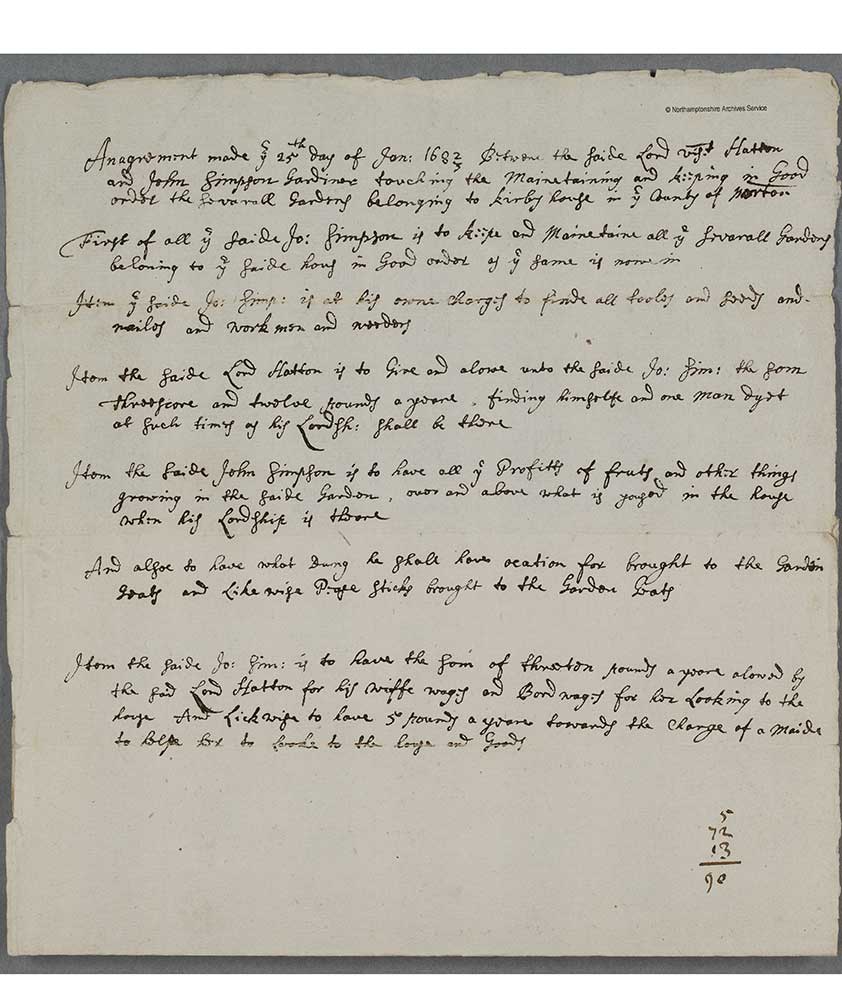 © Northamptonshire Archives Service
Anagrement made yͤ 25th day of Jan: 1682/3 Betwene the saide Lord visct Hatton
and John Simpson Gardiner touching the Mainetaining and keeping in Good
order the sevarall Gardens belonging to kirby house in yͤ County of Norton
First of all yͤ saide Jo: Simpson is to keipe and Mainetaine all yͤ sevarall Gardens
beloning to yͤ saide hous in Good order as yͤ same is now in
Item yͤ saide Jo: Simp: is at his owne charges to finde all tooles and seeds and
nailes and workmen and weeders
Itom the saide Lord Hatton is to Give and alowe unto the saide Jo: Sim: the som
threescore and twelve pounds a yeare, finding himselfe and one man dyet
at such times as his Lordsh: shall be there
Itom the saide John Simpson is to have all yͤ Profitts of fruts and other things
growing in the saide Garden, over and above what is yousd in the house
when his Lordship is theere
And alsoe to have what dung he shall have ocation for brought to the Garden
Geats and Likewise Pease sticks brought to the Garden Geats
Itom the saide Jo: Sim: is to have the som of threeten pounds a yeare alowed by
the said Lord Hatton for his wiffe wages and Bordwages for her Looking to the
house And Lickwise to have 5 pounds a yeare towards the Charge of a Maide
to helpe her to Looke to the house and Goods
5
72
13
90